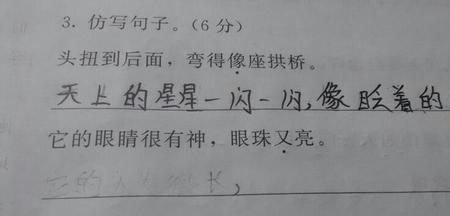 3. 仿写句子。(6分)
头扭到后面，弯得像座拱桥。
天上的星星一闪一闪，像眨着的
它的眼睛很有神，眼珠又亮。
它的
长，